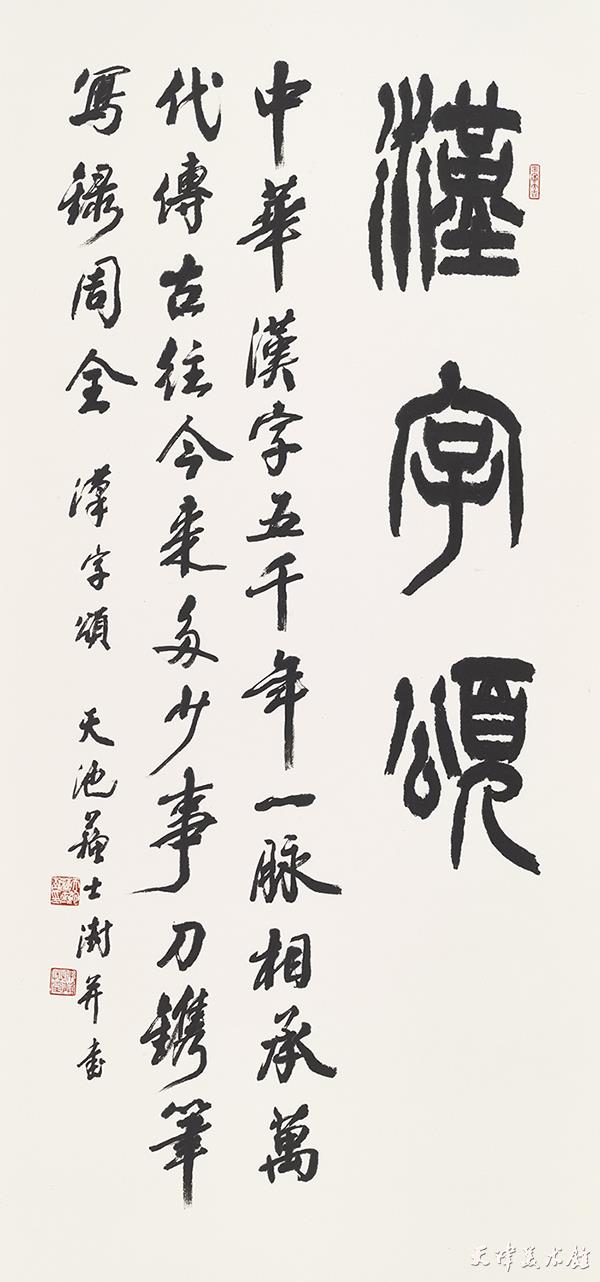 漢字頌
中華漢字五千年一脉相承萬
代傳古往今来多少事刀鐫筆
寫錄周全 漢字頌 天池蘇士澍并書
天津美术馆